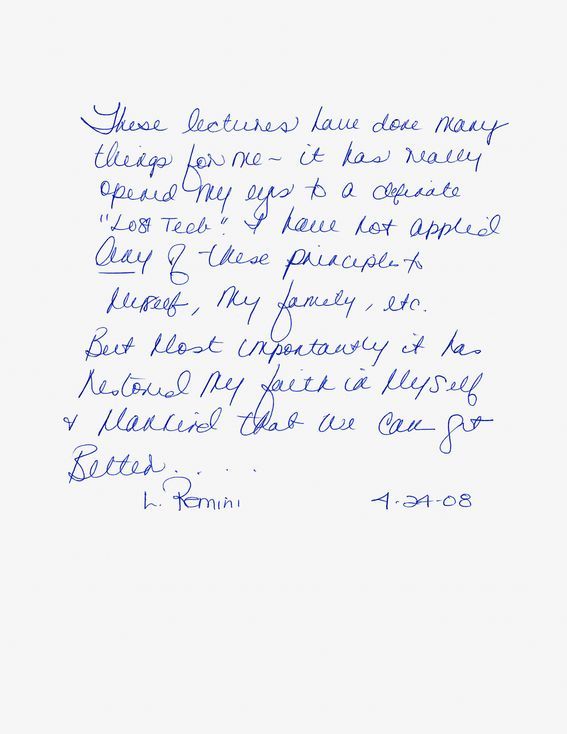 These lectures have done many
things for me~ it has really
opened my eyes to a definate
"Lost Tech". I have not applied
Any of these principles to
Myself, My family, etc.
But Most importantly it has
restored My faith in Myself
& Mankind that we can get
Better.....
L. Remini 4-24-08